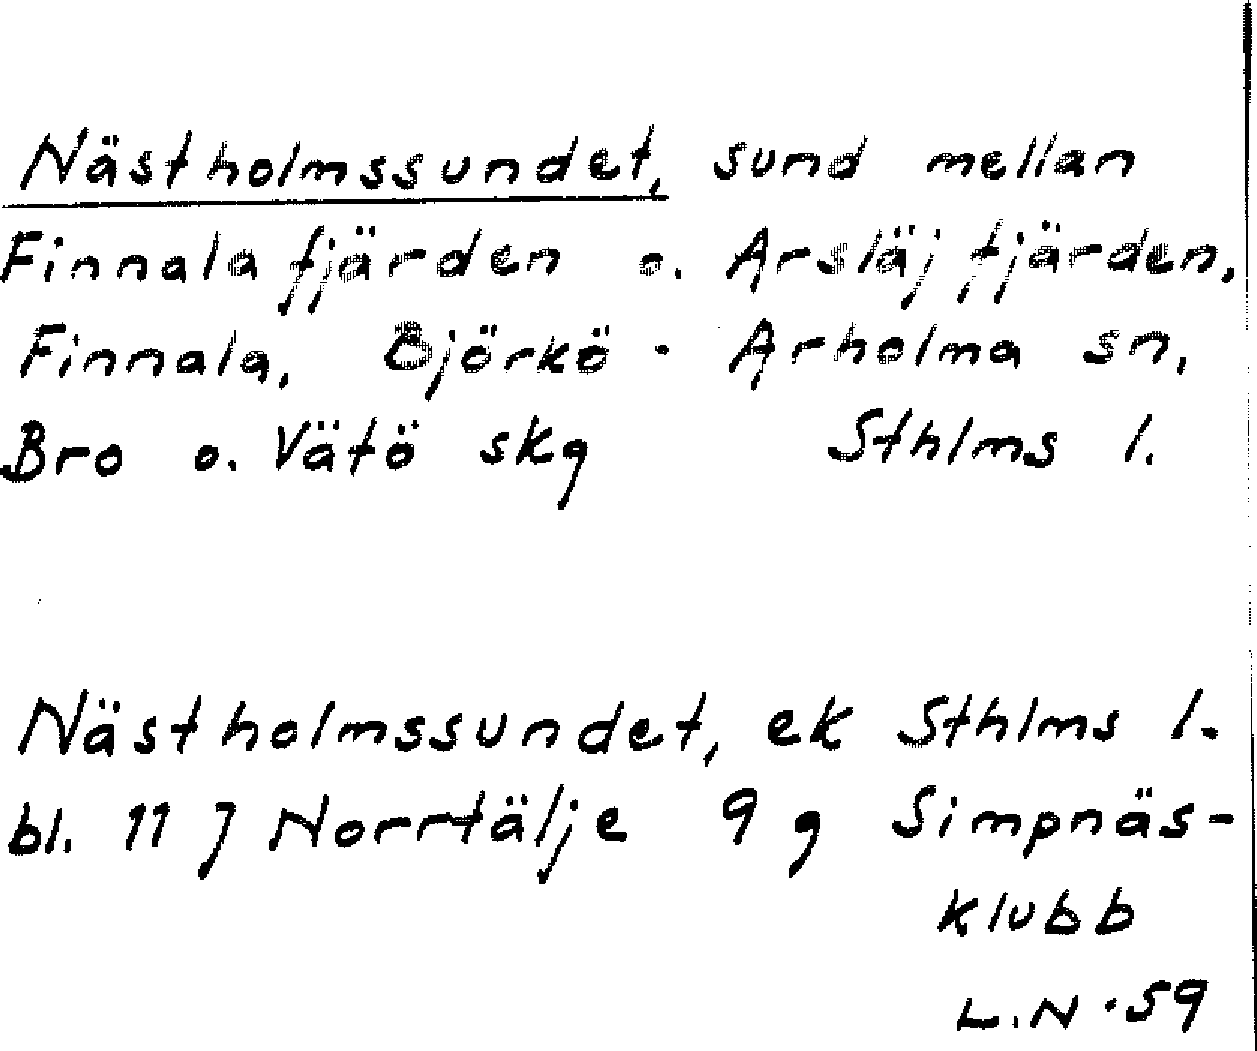 Nästholmssundet, sund mellan
Finnalafjärden o. Arsläjfjärden,
Finnala, Björkö - Arholma sn,
Bro o. Vätö skg Sthlms l.
Nästholmssundet, ek Sthlms l.
bl. 11 J Norrtälje 9 g Simpnäs-
klubb
L.N. 59